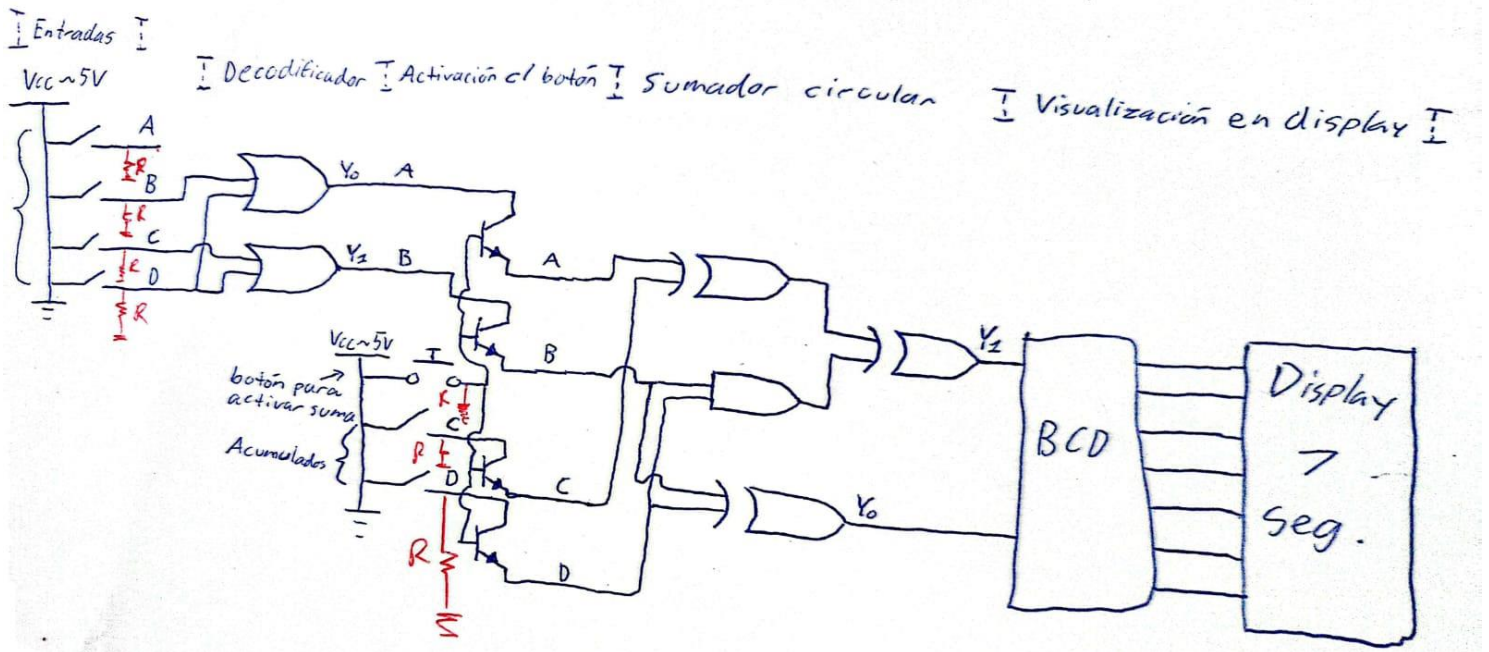 Entradas
Vcc~5V
Decodificador
Activación c/ botón
Sumador circular
Visualización en display
A
R
B
R
C
R
D
R
Y0 A
Y1 B
A
B
Vcc~5V
botón para
activar suma
R
Acumulados
C
R
D
R
C
D
Y1
Y0
BCD
Display
7
seg.